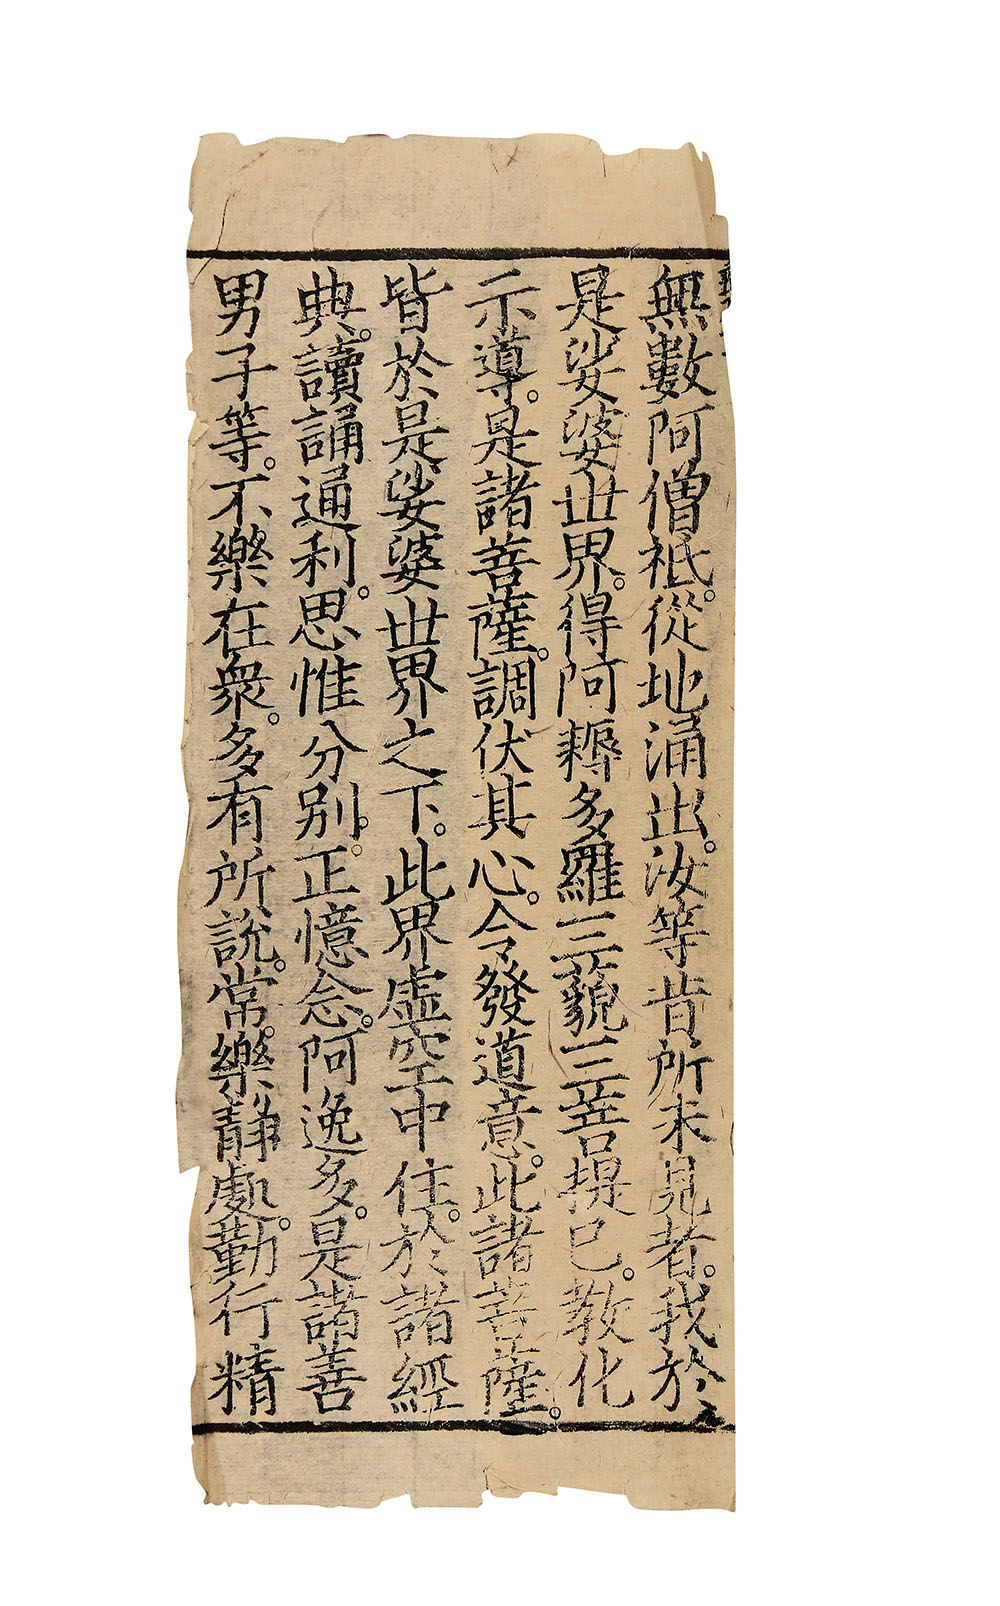 無數阿僧祇。從地涌出。汝等昔所未見者。我於
是娑婆世界。得阿耨多羅三藐三菩提已。教化
示導。是諸菩薩。調伏其心。令發道意。此諸菩薩。
皆於是娑婆世界之下。此界虛空中住。於諸經
典。讀誦通利。思惟分別。正憶念。阿逸多。是諸善
男子等。不樂在衆。多有所說。常。樂靜處。勤行精